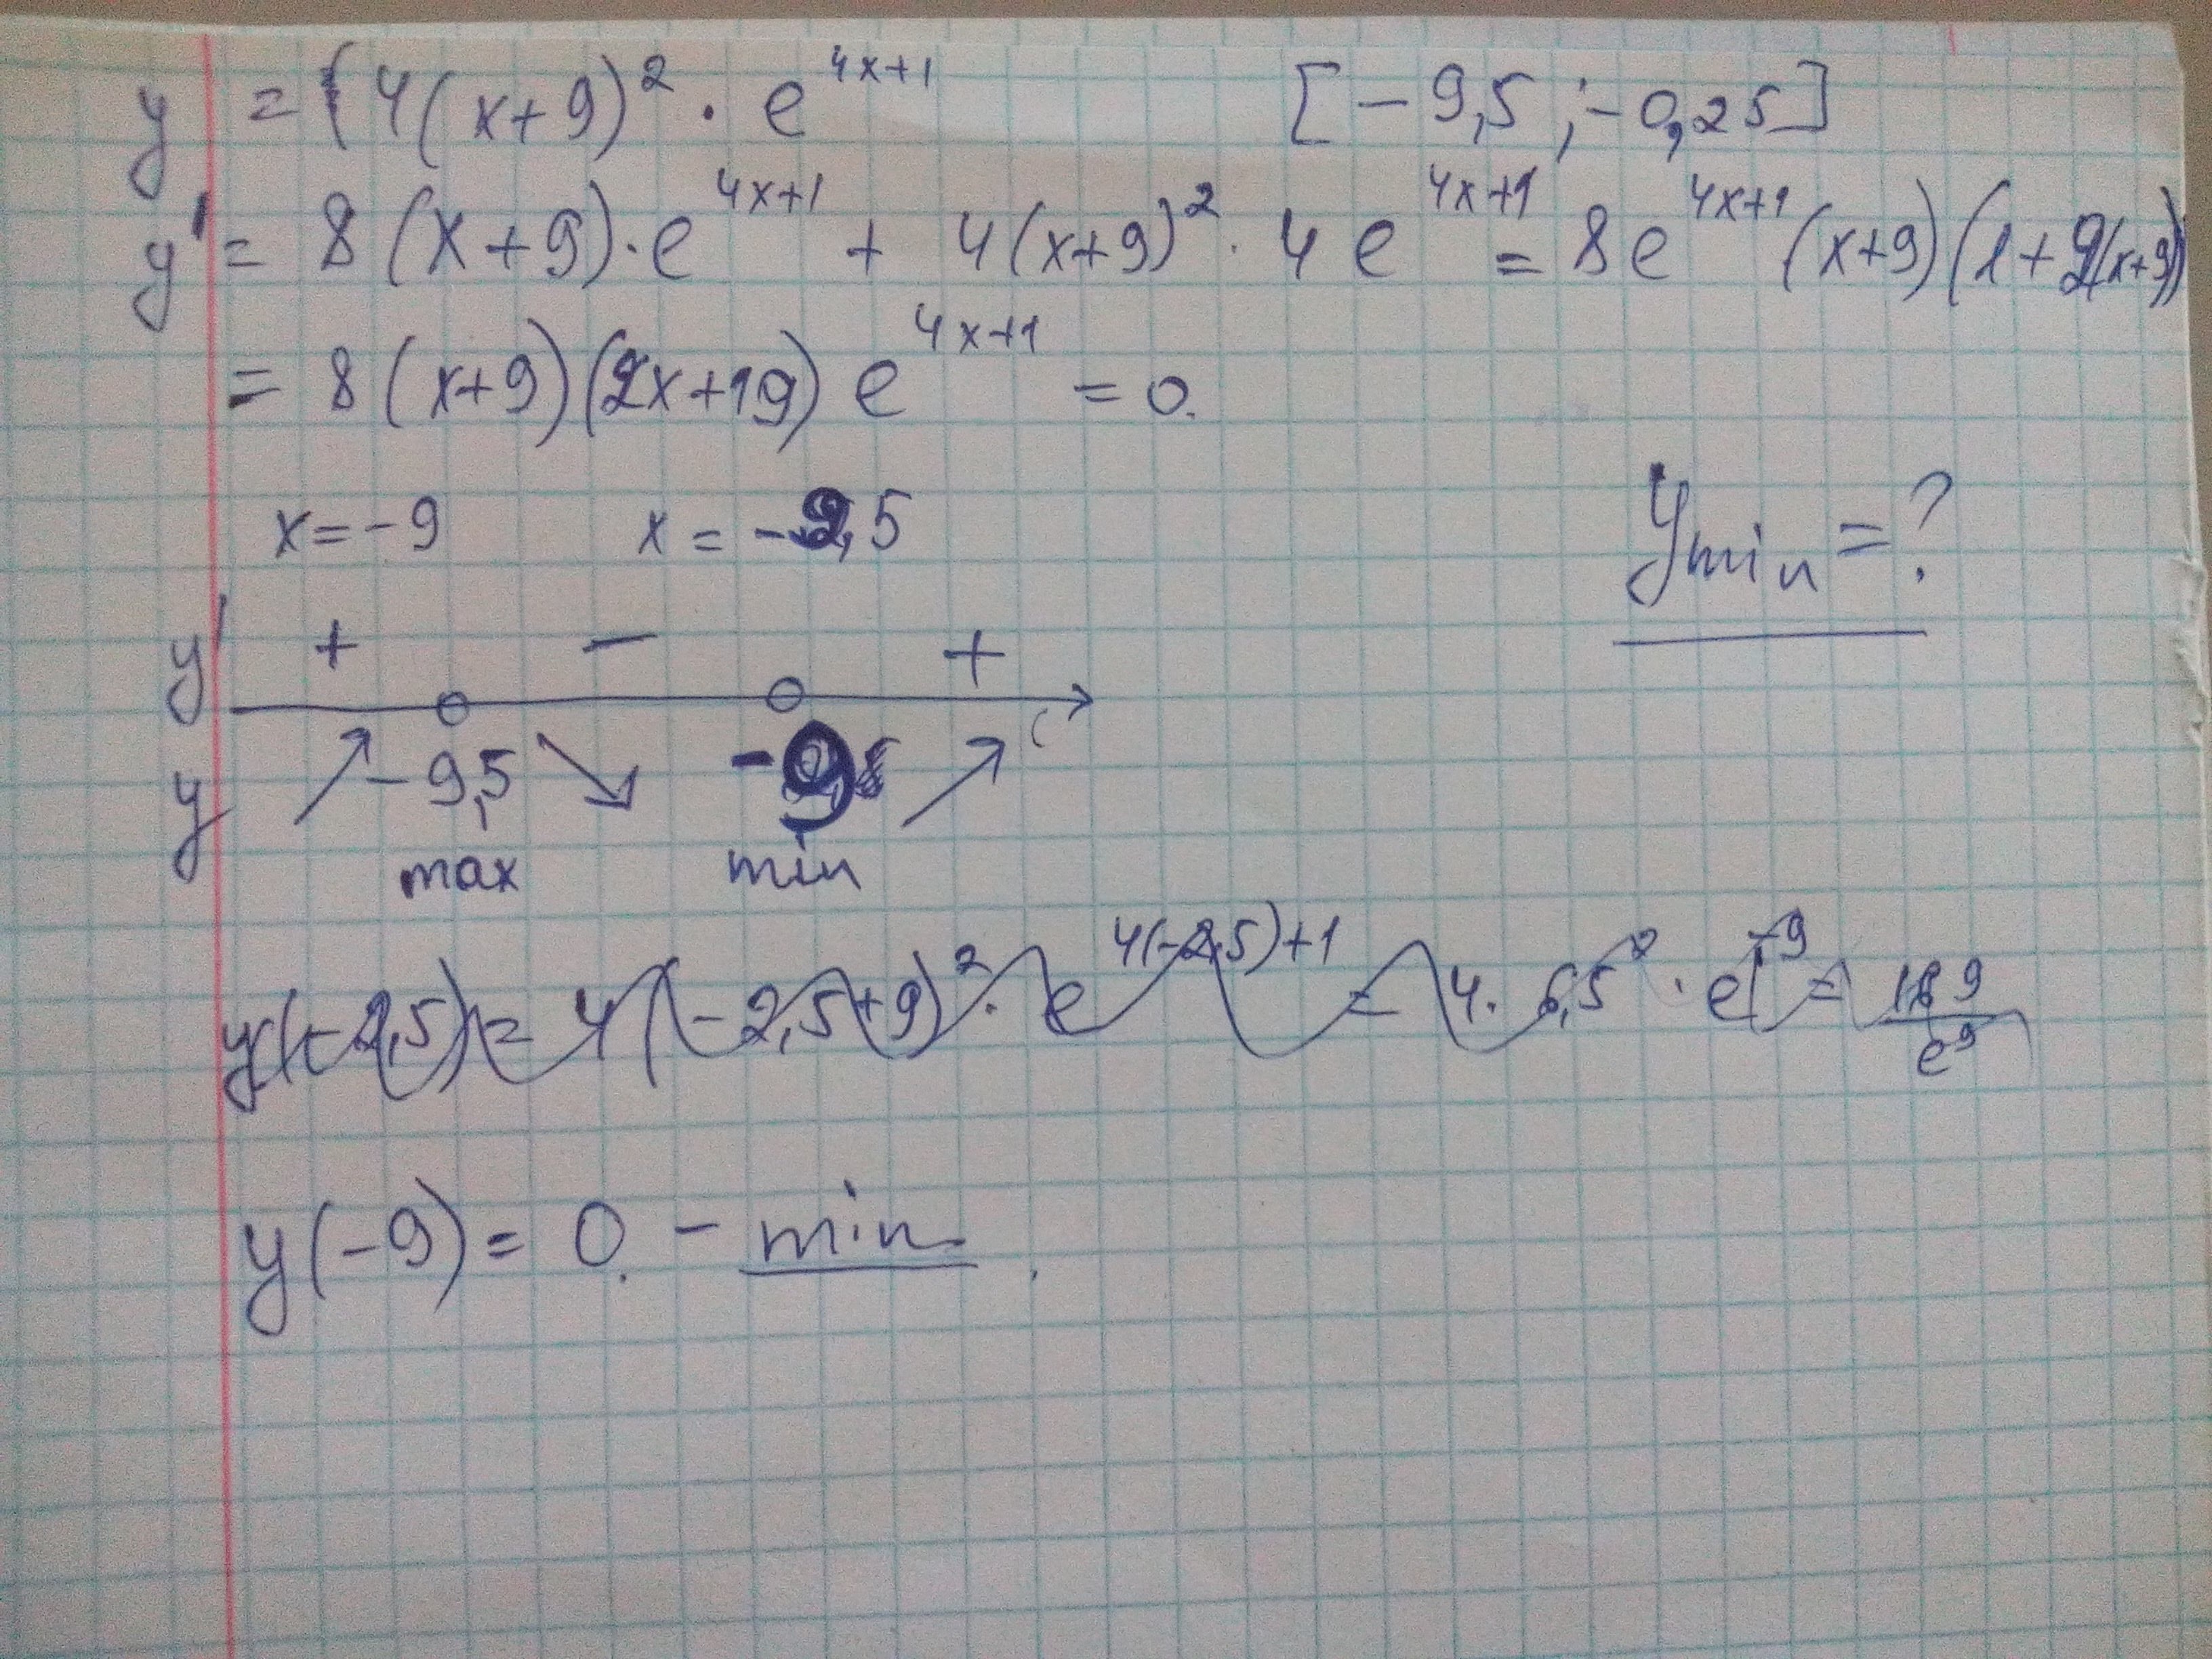 y = 4(x+9)² · e^(4x+1) [-9,5 ; -0,25]
y' = 8(x+9)·e^(4x+1) + 4(x+9)² · 4e^(4x+1) = 8e^(4x+1)(x+9)(1+2(x+9))
= 8(x+9)(2x+19)e^(4x+1) = 0.
y min = ?
x = -9 x = -9,5
y' + - +
y -9,5 -9
max min
y(-2,5) = 4(-2,5+9)² · e^(4(-2,5)+1) = 4 · 6,5² · e^(-9) = 169/e^9
y(-9) = 0. - min.